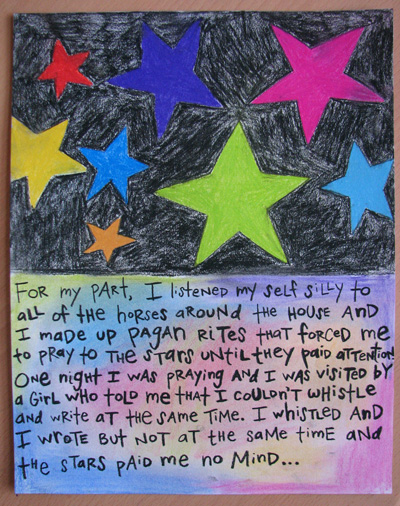 FOR my PART, I listened my self silly to
all of the horses around the house and
I made up pagan rites that forced me
to pray to the stars until they paid attention!
One night I was praying and I was visited by
a girl who told me that I couldn't whistle
and write at the same time. I whistled and
I wrote but not at the same time and
the stars paid me no mind...